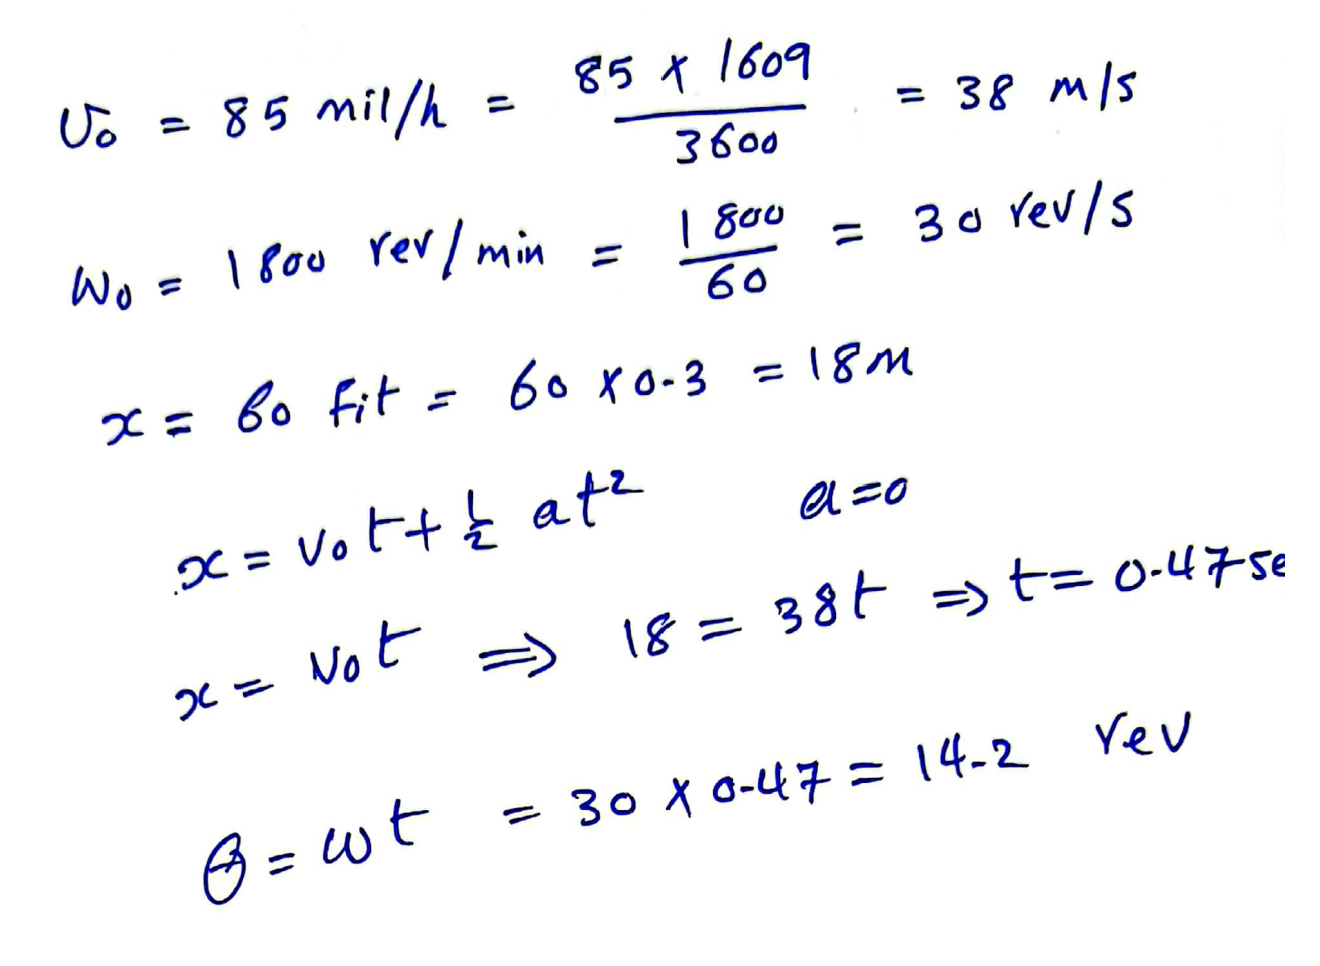 v₀ = 85 mil/h = 85 × 1609 / 3600 = 38 m/s
ω₀ = 1800 rev/min = 1800 / 60 = 30 rev/s
x = 60 fit = 60 × 0.3 = 18m
x = v₀t + ½ at² a=0
x = v₀t ⇒ 18 = 38t ⇒ t = 0.47se
θ = ωt = 30 × 0.47 = 14.2 rev